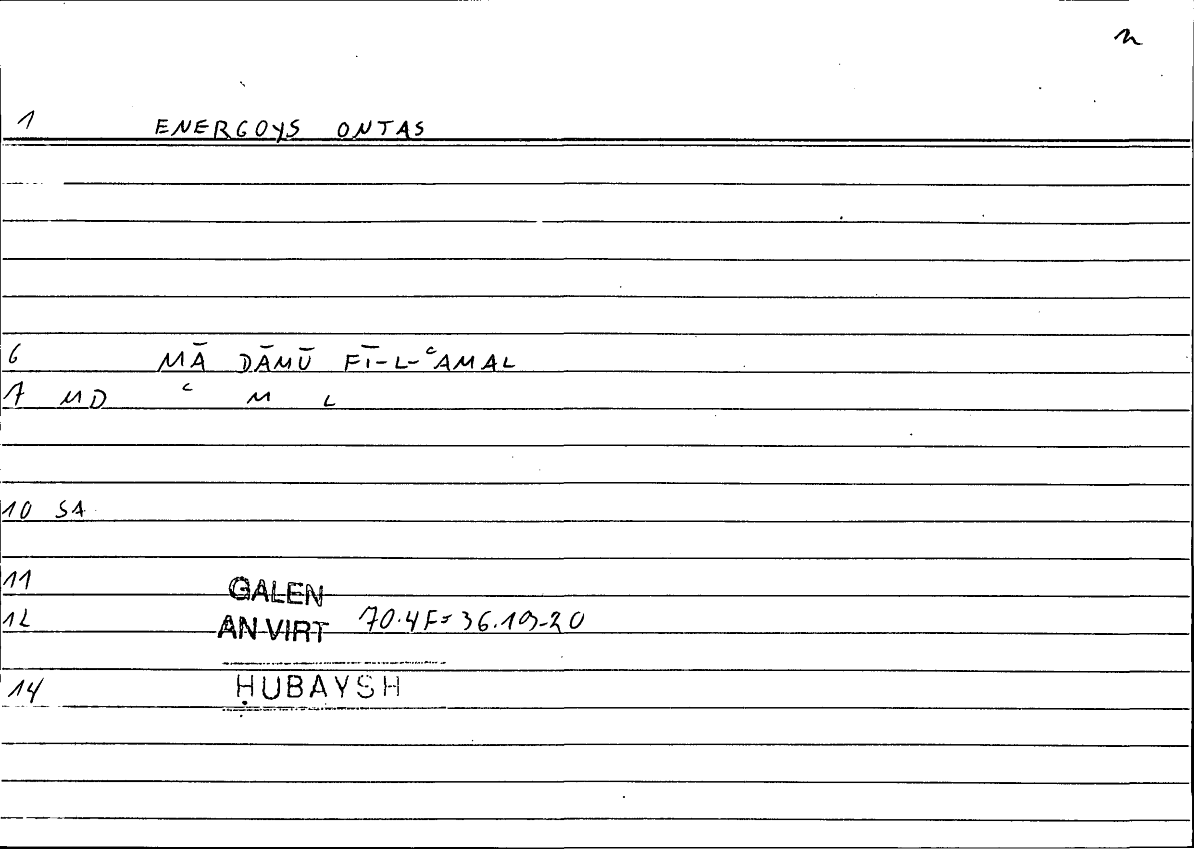 n
1 ENERGOYS ONTAS
6 MĀ DĀMŪ FĪ-L-ʿAMAL
7 MD ʿ M L
10 SA
11 GALEN
12 AN VIRT 70.4F=36.19-20
14 ḤUBAYSH